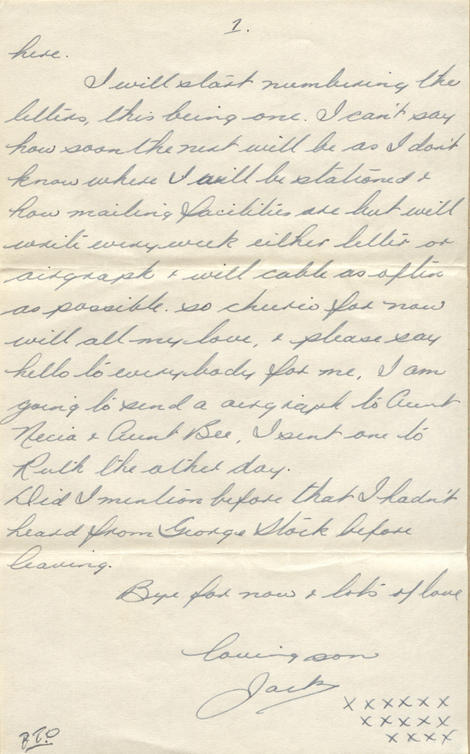 1.
here.
I will start numbering the
letters, this being one. I can't say
how soon the next will be as I don't
know where I will be stationed &
how mailing facilities are but will
write every week either letter or
airgraph & will cable as often
as possible. so cheerio for now
will all my love, & please say
hello to everybody for me, I am
going to send a airgraph to Aunt
Necia & Aunt Bee, I sent one to
Ruth the other day.
Did I mention before that I hadn't
heard from George Stock before
leaving.
Bye for now & lots of love
loving son
Jack
xxxxxx
xxxxx
xxxx
P.T.O